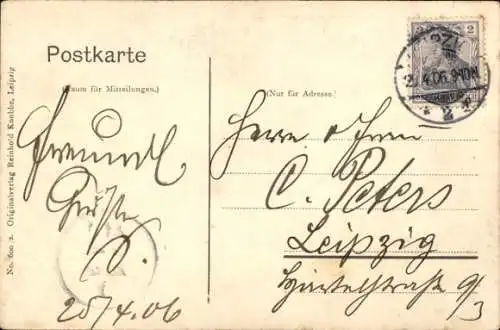 No. 600 2. Originalverlag Reinhold Knobbe, Leipzig
Postkarte
(Raum für Mitteilungen.)
(Nur für Adresse.)
Freundl.
Grüße
25/4.06
Herrn & Frau
C. Peters
Leipzig
Härtelstraße 9/3
2
4.06. 9-10
* 2